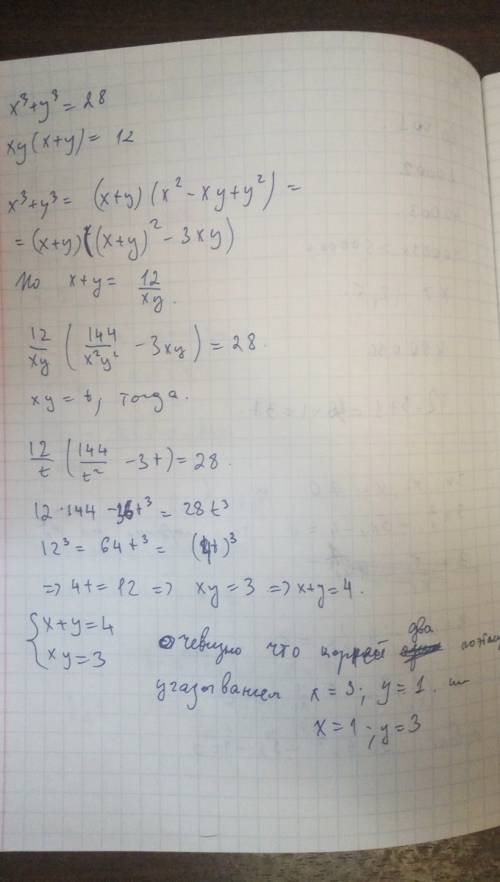 x³+y³ = 28
xy(x+y) = 12
x³+y³ = (x+y)(x² - xy + y²) =
= (x+y)((x+y)² - 3xy)
Но x+y = 12/xy.
12/xy (144/x²y² - 3xy) = 28.
xy = t, тогда.
12/t (144/t² - 3t) = 28.
12·144 - 36t³ = 28t³
12³ = 64t³ = (4t)³
=> 4t = 12 => xy = 3 => x+y = 4.
{ x+y=4
xy=3
Очевидно что корней два
угадыванием x = 3; y = 1. или
x = 1; y = 3